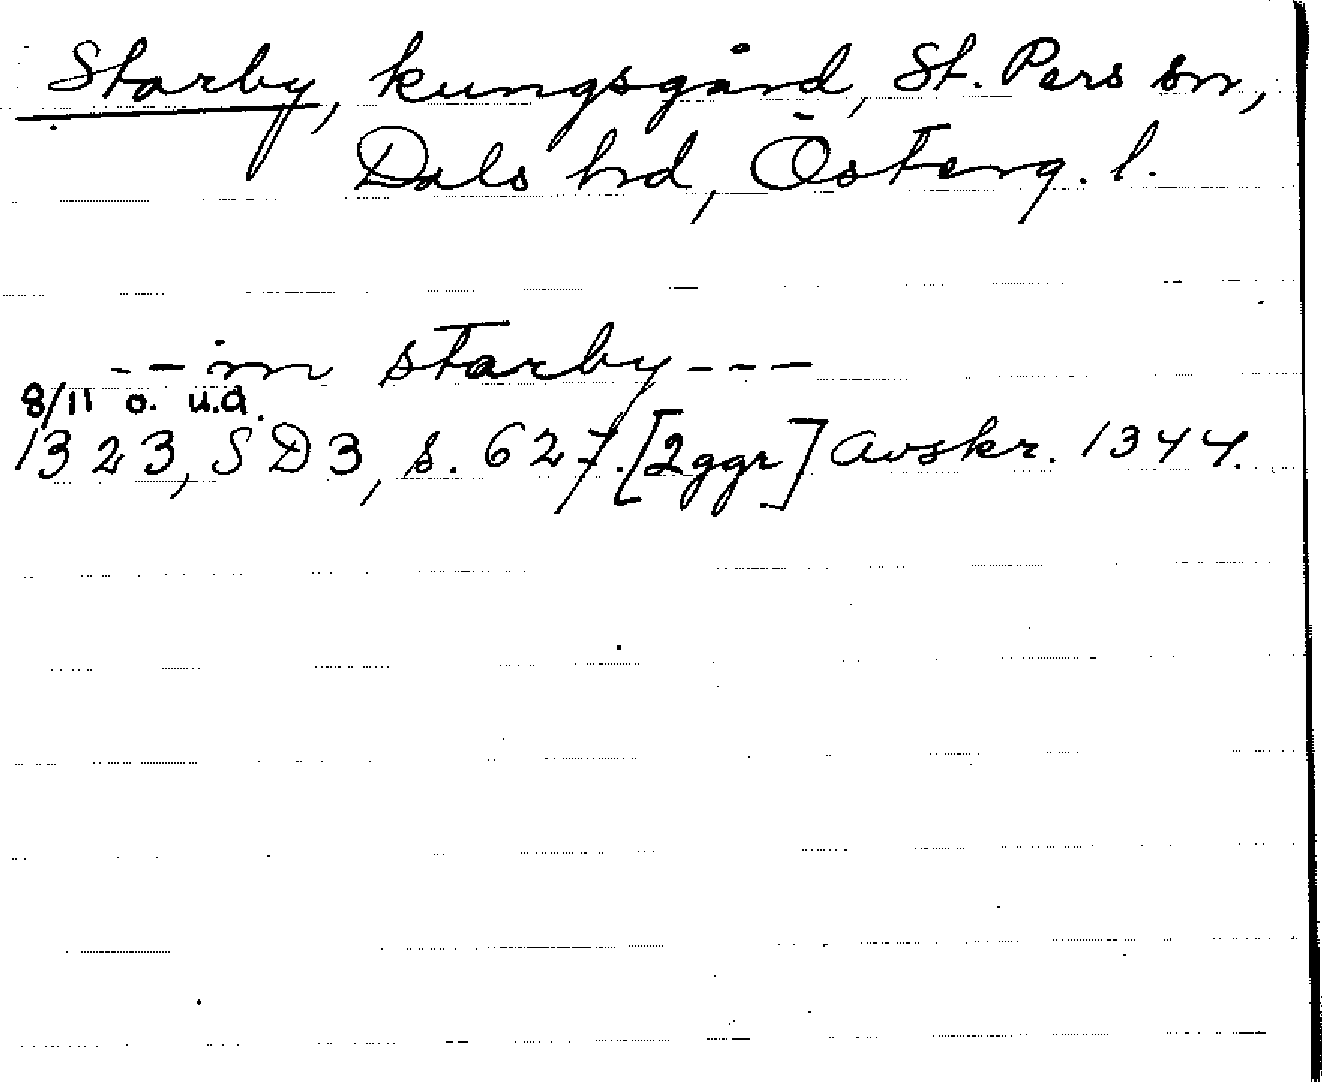 Starby, kungsgård, St. Pers sn,
Dals hd, Österg. l.
-- in starby ---
8/11 o. u.a.
1323, SD3, s. 627. [2ggr] Avskr. 1344.